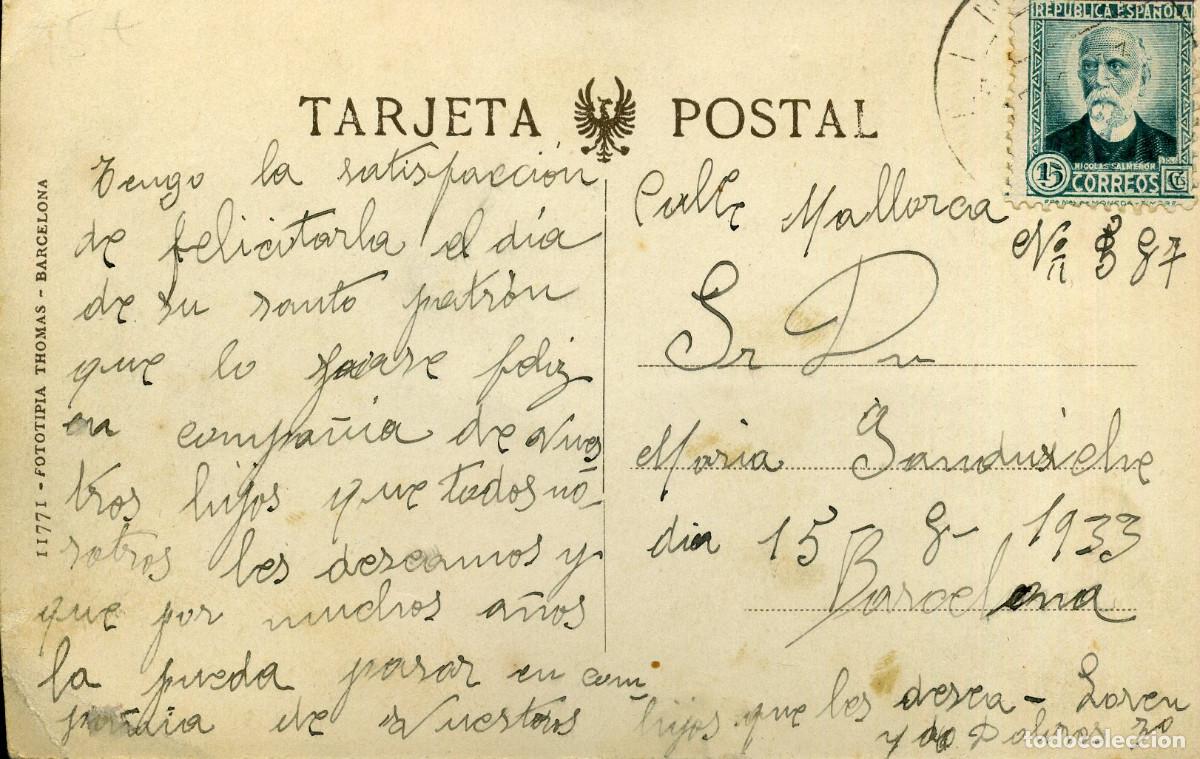 TARJETA POSTAL
REPUBLICA ESPAÑOLA
NICOLAS SALMERON
15 CTS
CORREOS
11771 - FOTOTIPIA THOMAS - BARCELONA
Tengo la satisfacción
de felicitarla el día
de su santo patrón
que lo feliz
en compañia de vues
tros hijos que todos no-
sotros les deseamos y
que por muchos años
la pueda pasar en com
pañia de Vuestros hijos que les desea - Loren
y Dolores zo
Calle Mallorca
No 87
Sr
Maria
dia 15 - 8 - 1933
Barcelona
todocoleccion